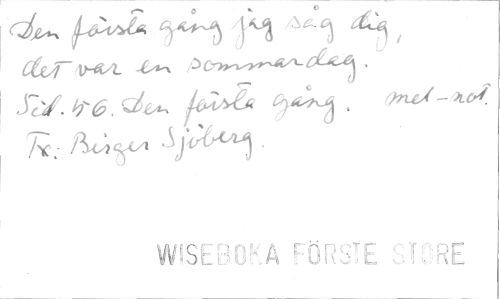 Den första gång jag såg dig,
det var en sommardag.
Sid. 56. Den första gång. mel-not.
Tx: Birger Sjöberg.
WISEBOKA FÖRSTE STORE